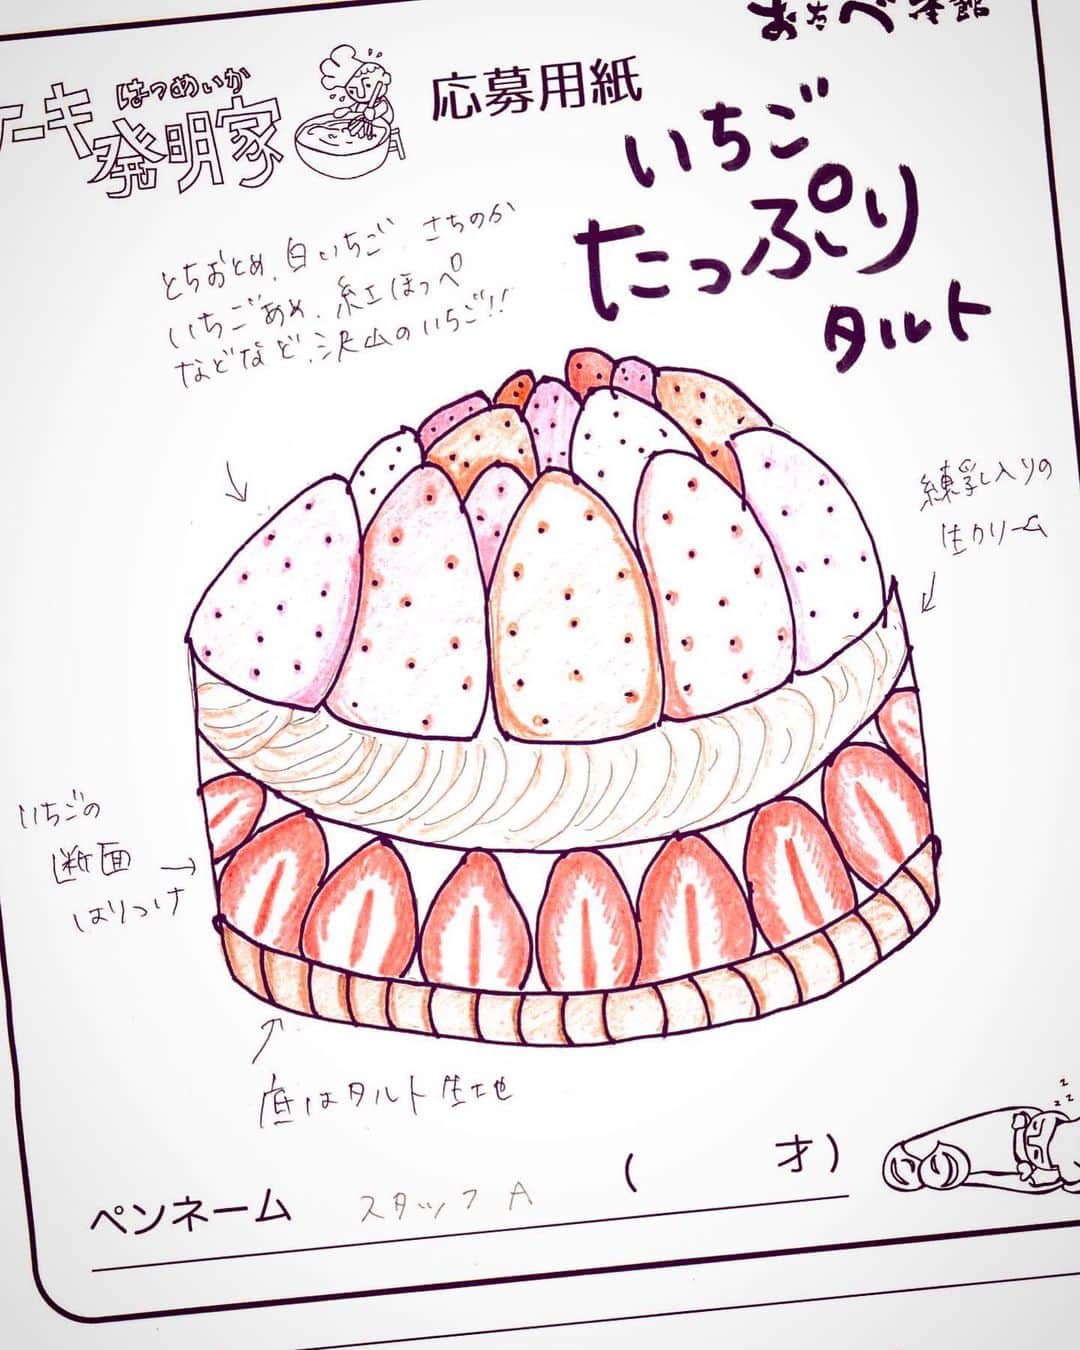 おたべ本館
ケーキ
はつめいか
発明家
応募用紙
いちご
たっぷり
タルト
とちおとめ、白いちご、さちのか
いちごあめ、紅ほっぺ
などなど、沢山のいちご!!
練乳入りの
生クリーム
いちごの
断面
はりつけ
底はタルト生地
ペンネーム スタッフA ( 才)
z
z z